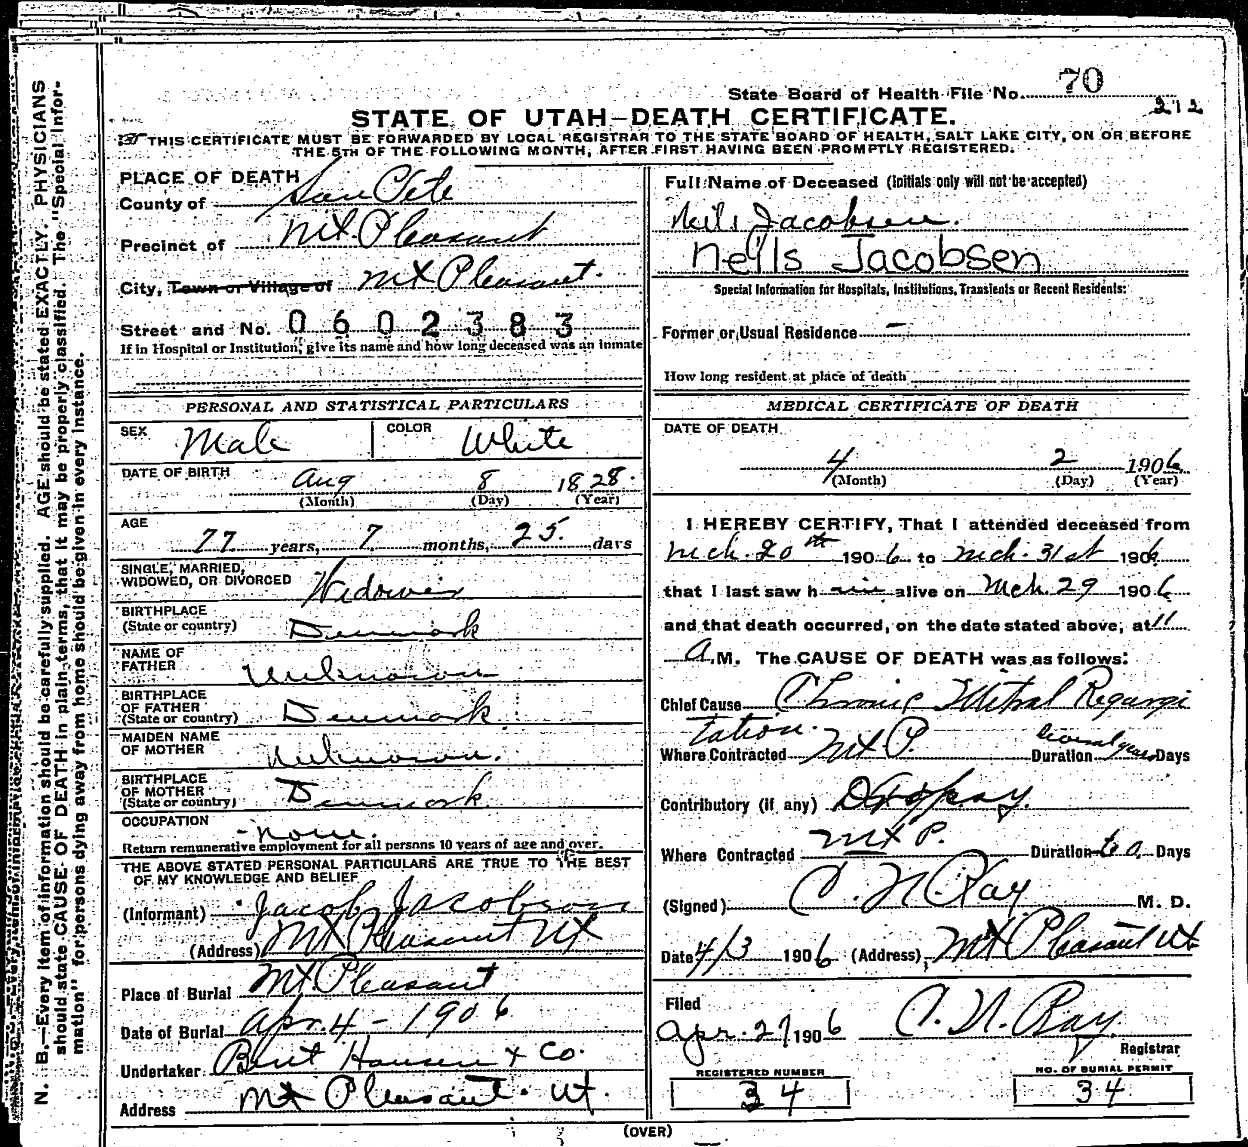 State Board of Health File No. 70
212
STATE OF UTAH—DEATH CERTIFICATE.
THIS CERTIFICATE MUST BE FORWARDED BY LOCAL REGISTRAR TO THE STATE BOARD OF HEALTH, SALT LAKE CITY, ON OR BEFORE
THE 5TH OF THE FOLLOWING MONTH, AFTER FIRST HAVING BEEN PROMPTLY REGISTERED.
PLACE OF DEATH
County of San Pete
Precinct of Mt Pleasant
City, Town or Village of Mt Pleasant.
Street and No. 0602383
If in Hospital or Institution, give its name and how long deceased was an inmate
PERSONAL AND STATISTICAL PARTICULARS
SEX Male COLOR White
DATE OF BIRTH Aug 8 1828.
(Month) (Day) (Year)
AGE
77 years, 7 months, 25. days
SINGLE, MARRIED,
WIDOWED, OR DIVORCED Widower
BIRTHPLACE
(State or country) Denmark
NAME OF
FATHER Unknown
BIRTHPLACE
OF FATHER
(State or country) Denmark
MAIDEN NAME
OF MOTHER Unknown.
BIRTHPLACE
OF MOTHER
(State or country) Denmark
OCCUPATION
- none.
Return remunerative employment for all persons 10 years of age and over.
THE ABOVE STATED PERSONAL PARTICULARS ARE TRUE TO THE BEST
OF MY KNOWLEDGE AND BELIEF
(Informant) Jacob Jacobson
(Address) Mt Pleasant Ut
Place of Burial Mt Pleasant
Date of Burial Apr. 4 - 1906
Undertaker Bent Hansen & Co.
Address Mt Pleasant. Ut.
Full Name of Deceased (Initials only will not be accepted)
Neils Jacobsen.
Neils Jacobsen
Special Information for Hospitals, Institutions, Transients or Recent Residents:
Former or Usual Residence —
How long resident at place of death
MEDICAL CERTIFICATE OF DEATH
DATE OF DEATH
4 2 1906
(Month) (Day) (Year)
I HEREBY CERTIFY, That I attended deceased from
Mch. 20th 1906 to Mch. 31st 1906
that I last saw h im alive on Mch. 29 1906
and that death occurred, on the date stated above, at 11
A.M. The CAUSE OF DEATH was as follows:
Chief Cause Chronic Mitral Regurgi
tation.
Where Contracted Mt P. Duration several years Days
Contributory (if any) Dropsy.
Where Contracted Mt P. Duration Days
(Signed) C. N. Ray M. D.
Date 4/3 1906 (Address) Mt Pleasant Ut
Filed
Apr. 27 1906 C. N. Ray
Registrar
REGISTERED NUMBER
34
NO. OF BURIAL PERMIT
34
(OVER)
N. B.—Every item of information should be carefully supplied. AGE should be stated EXACTLY. PHYSICIANS
should state CAUSE OF DEATH in plain terms, that it may be properly classified. The "Special Infor-
mation" for persons dying away from home should be given in every instance.